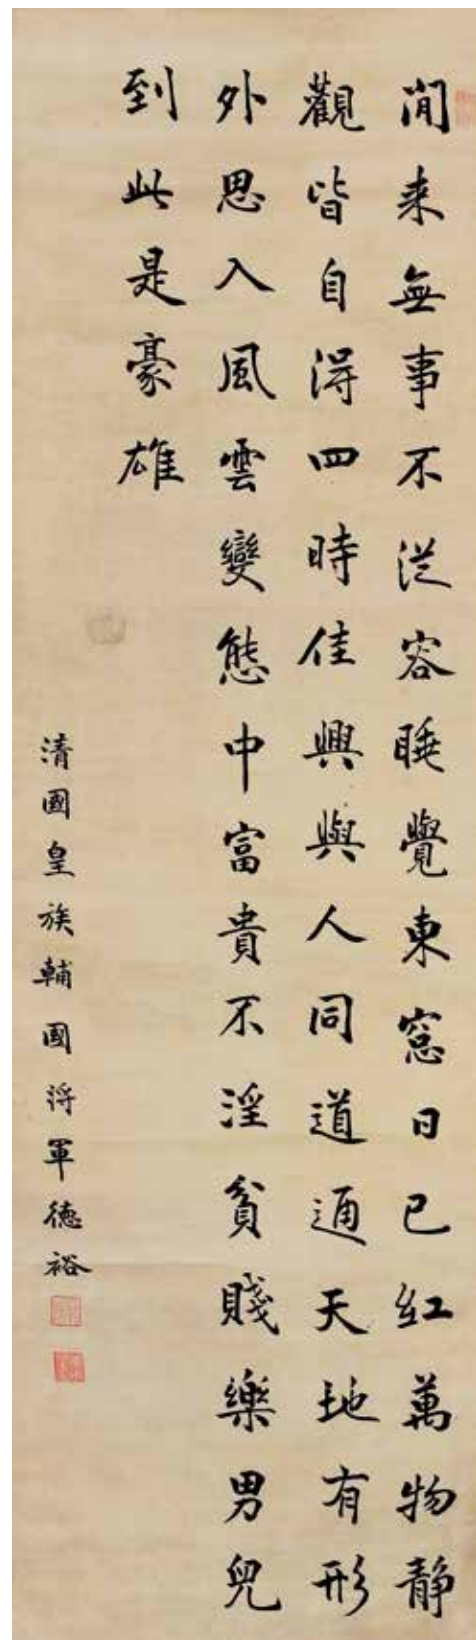 閒来無事不從容睡覺東窓日已紅萬物静
觀皆自得四時佳興與人同道通天地有形
外思入風雲變態中富貴不淫貧賤樂男兒
到此是豪雄
清國皇族輔國将軍德裕